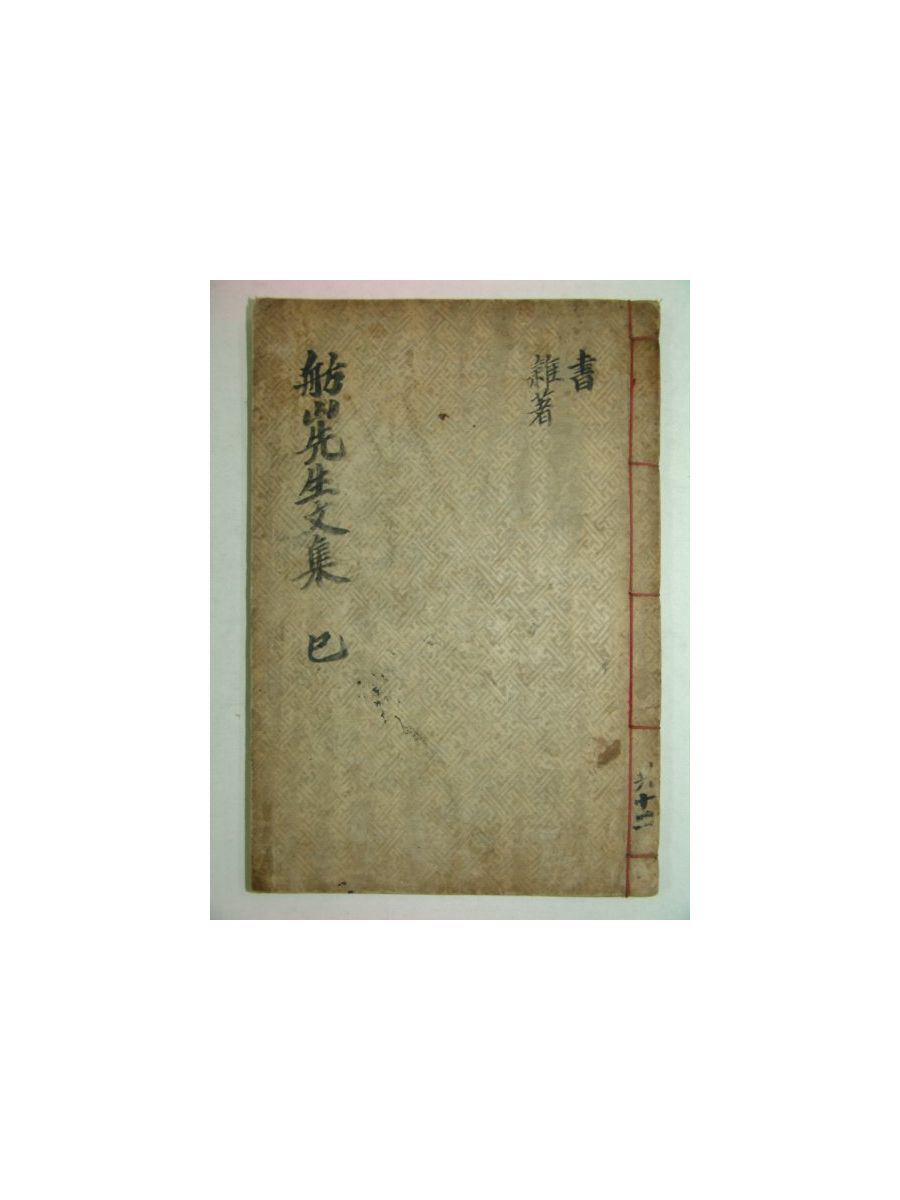 書
雜著
舫山先生文集 巳
共十二